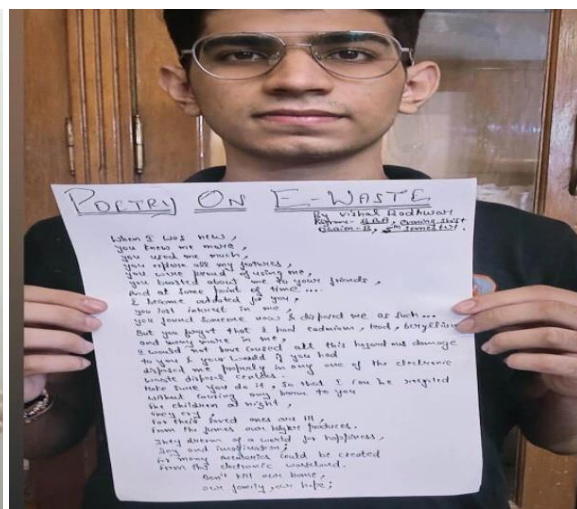 POETRY ON E-WASTE
By Vishal Badhwar
BBA, evening shift
Section-B, 5th semester.
When I was new,
you knew me more,
you used me much,
you explore all my features,
you were proud of using me,
you boasted about me to your friends,
And at some point of time....
I became outdated for you,
you lost interest in me,
you found someone new & disposed me as such...
But you forgot that I had cadmium, lead, beryllium
and many more in me,
I would not have caused all this hazardous damage
to you & your world if you had
disposed me properly in any one of the electronic
waste disposal centres.
Make sure you do it, so that I can be recycled
without causing any harm to you
The children at night,
They cry,
For their loved ones are ill,
From the fumes our higher produces.
They dream of a world for happiness,
Joy and imagination;
For many memories could be created
From this electronic wasteland.
Don't kill our home,
our family, our hope;